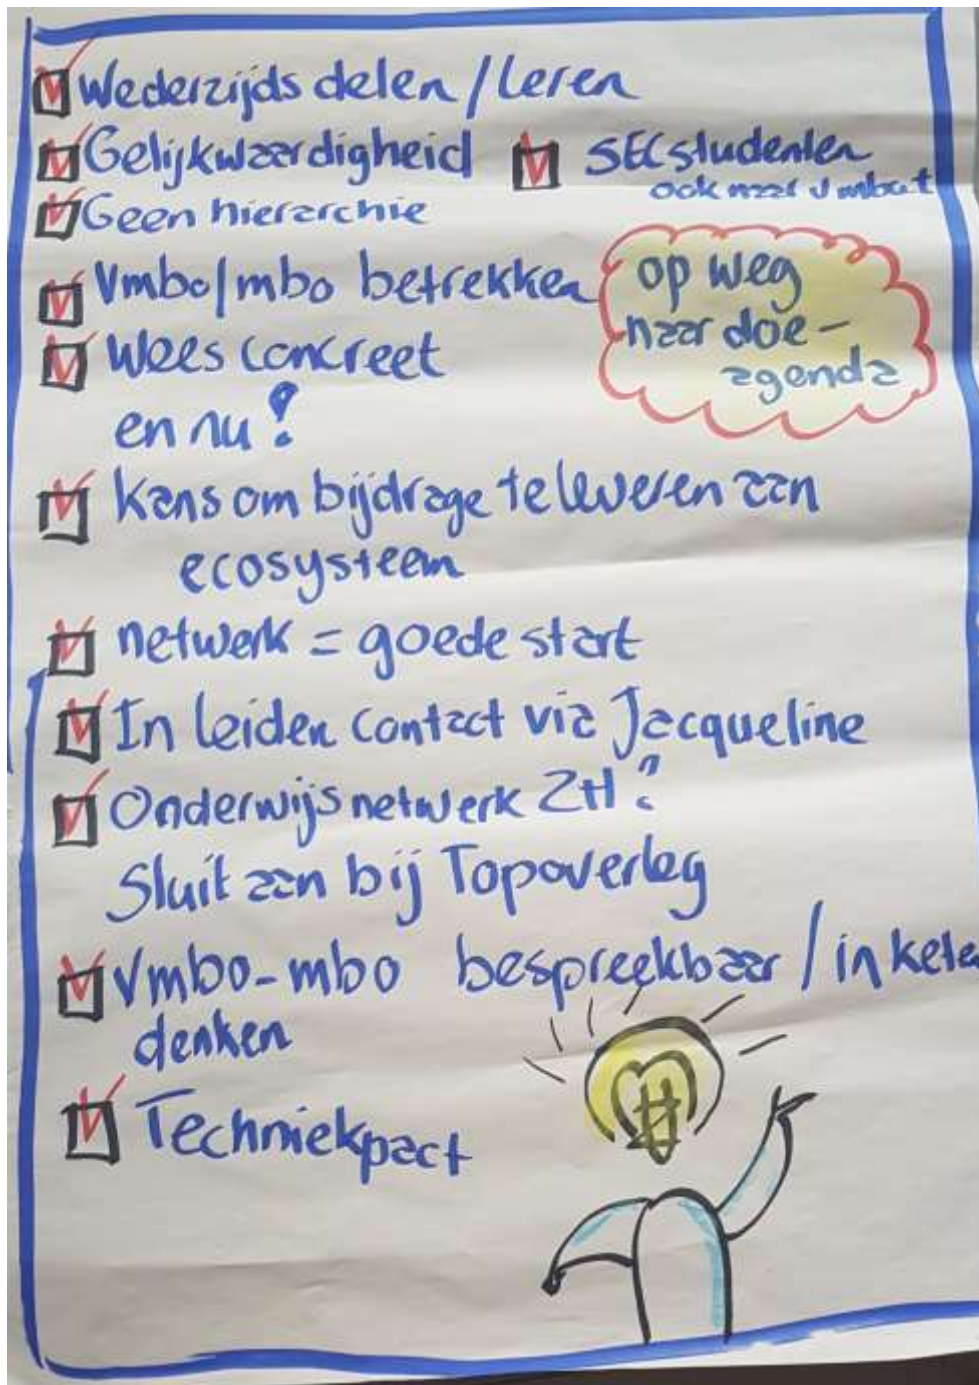 Wederzijds delen / leren
Gelijkwaardigheid
SEC studenten
ook naar vmbo-t
Geen hierarchie
Vmbo/mbo betrekken
Wees concreet
en nu?
op weg
naar doe-
agenda
Kans om bijdrage te leveren aan
ecosysteem
netwerk = goede start
In leiden contact via Jacqueline
Onderwijsnetwerk ZH?
Sluit aan bij Topoverleg
Vmbo-mbo bespreekbaar / in kete
denken
Techniekpact